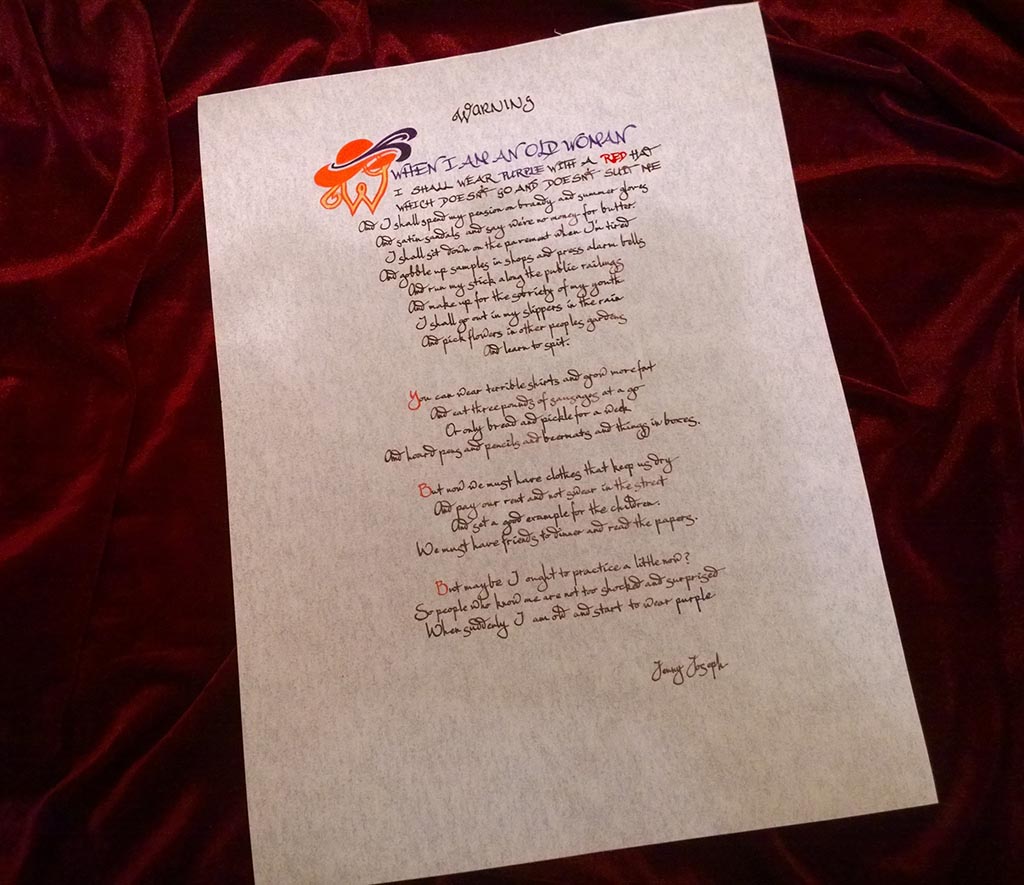 WARNING
WHEN I AM AN OLD WOMAN
I SHALL WEAR PURPLE WITH A RED HAT
WHICH DOESN'T GO AND DOESN'T SUIT ME
And I shall spend my pension on brandy and summer gloves
And satin sandals and say we're no money for butter.
I shall sit down on the pavement when I'm tired
And gobble up samples in shops and press alarm bells
And run my stick along the public railings
And make up for the sobriety of my youth
I shall go out in my slippers in the rain
And pick flowers in other peoples gardens
And learn to spit.
You can wear terrible shirts and grow more fat
And eat three pounds of sausages at a go
Or only bread and pickle for a week
And hoard pens and pencils and beermats and things in boxes.
But now we must have clothes that keep us dry
And pay our rent and not swear in the street
And set a good example for the children.
We must have friends to dinner and read the papers.
But maybe I ought to practice a little now?
So people who know me are not too shocked and surprised
When suddenly I am old and start to wear purple
Jenny Joseph